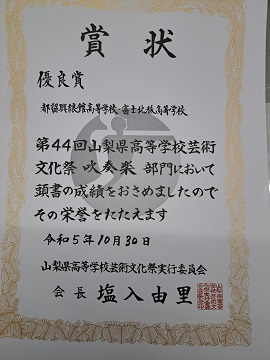 賞状
優良賞
都留興譲館高等学校・富士北稜高等学校
第44回山梨県高等学校芸術
文化祭 吹奏楽 部門において
頭書の成績をおさめましたので
その栄誉をたたえます
令和5年10月30日
山梨県高等学校芸術文化祭実行委員会
会長 塩入由里